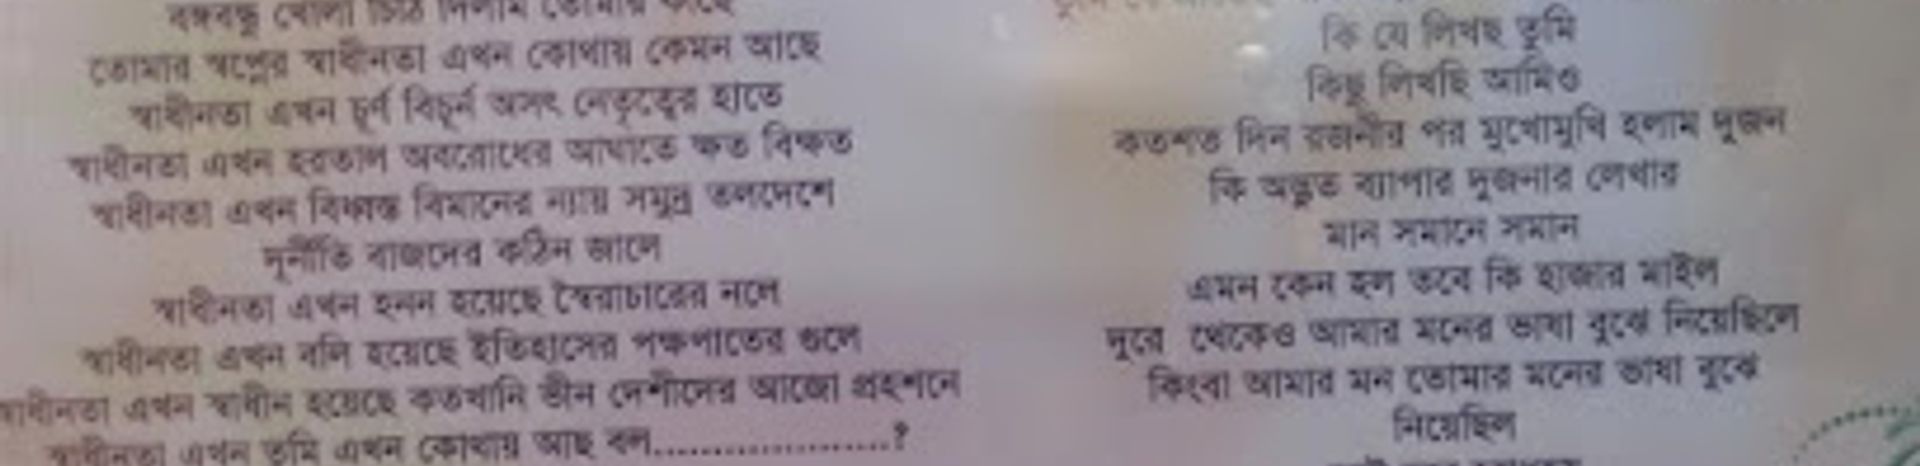 বঙ্গবন্ধু খোলা চিঠি দিলাম তোমার কাছে
তোমার স্বপ্নের স্বাধীনতা এখন কোথায় কেমন আছে
স্বাধীনতা এখন চূর্ণ বিচূর্ন অসৎ নেতৃত্বের হাতে
স্বাধীনতা এখন হরতাল অবরোধের আঘাতে ক্ষত বিক্ষত
স্বাধীনতা এখন বিধ্বস্ত বিমানের ন্যায় সমুদ্র তলদেশে
দূর্নীতি বাজদের কঠিন জালে
স্বাধীনতা এখন হনন হয়েছে স্বৈরাচারের নলে
স্বাধীনতা এখন বলি হয়েছে ইতিহাসের পক্ষপাতের গুলে
স্বাধীনতা এখন স্বাধীন হয়েছে কতখানি ভীন দেশীদের আজো প্রহশনে
স্বাধীনতা এখন তুমি এখন কোথায় আছ বল.....................?
কি যে লিখছ তুমি
কিছু লিখছি আমিও
কতশত দিন রজনীর পর মুখোমুখি হলাম দুজন
কি অদ্ভুত ব্যাপার দুজনার লেখার
মান সমানে সমান
এমন কেন হল তবে কি হাজার মাইল
দূরে থেকেও আমার মনের ভাষা বুঝে নিয়েছিলে
কিংবা আমার মন তোমার মনের ভাষা বুঝে
নিয়েছিল